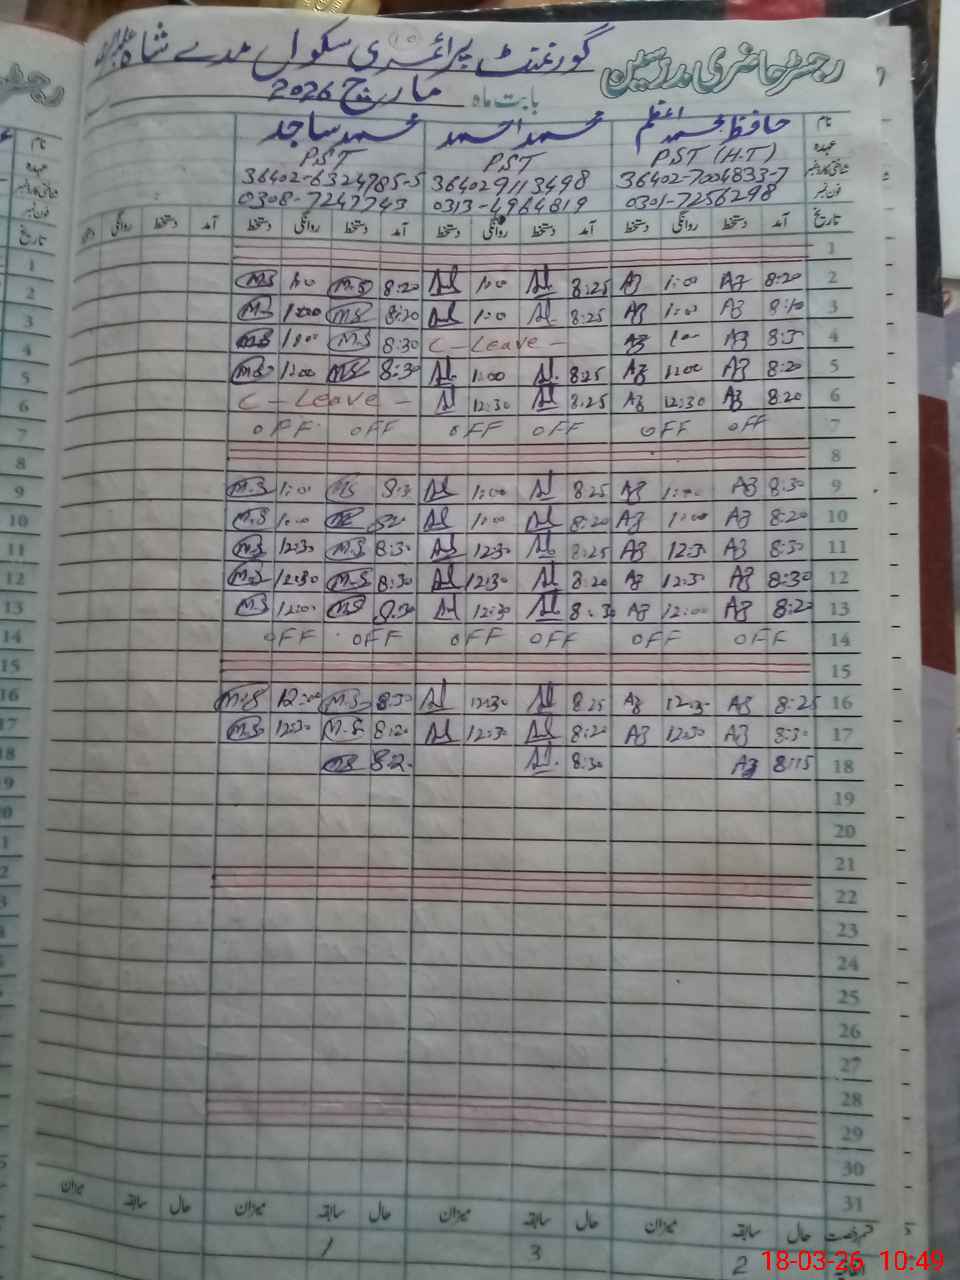 رجسٹر حاضری مدرسین گورنمنٹ پرائمری سکول مدے شاہ
بابت ماہ مارچ 2026
نام حافظ محمد اعظم محمد احمد محمد ساجد
عہدہ PST (H.T) PST PST
36402-7004833-7 364029113498 36402-6324785-5
فون نمبر 0301-7256298 0313-4964819 0308-7247743
تاریخ آمد دستخط روانگی دستخط آمد دستخط روانگی دستخط آمد دستخط روانگی دستخط آمد دستخط روانگی
1
2 8:20 Az 1:00 Az 8:25 1:00 8:20 M.S 1:00 M.S
3 8:10 Az 1:00 Az 8:25 1:00 8:20 MS 1:00 M.S
4 8:30 Az 1:00 Az C - Leave - 8:30 M.S 1:00 M.S
5 8:20 Az 1:00 Az 8:25 1:00 8:30 MS 1:00 M.S
6 8:20 Az 12:30 Az 8:25 12:30 C - Leave -
7 OFF OFF OFF OFF OFF OFF
8
9 8:30 Az 1:00 Az 8:25 1:00 8:30 MS 1:00 M.S
10 8:20 Az 1:00 Az 8:20 1:00 820 1:00 M.S
11 8:30 Az 12:30 Az 8:25 12:30 8:30 M.S 12:30 M.S
12 8:30 Az 12:30 Az 8:20 12:30 8:30 M.S 12:30 M.S
13 8:20 Az 12:00 Az 8:30 12:30 8:30 MS 12:00 M.S
14 OFF OFF OFF OFF OFF OFF
15
16 8:25 Az 12:30 Az 8:25 12:30 8:30 M.S 12:00 M.S
17 8:30 Az 12:30 Az 8:20 12:30 8:20 M.S 12:30 M.S
18 8:15 Az 8:30 8:2
19
20
21
22
23
24
25
26
27
28
29
30
31
قسم رخصت حال سابقہ میزان حال سابقہ میزان حال سابقہ میزان حال سابقہ میزان
2 3 1
18-03-26 10:49